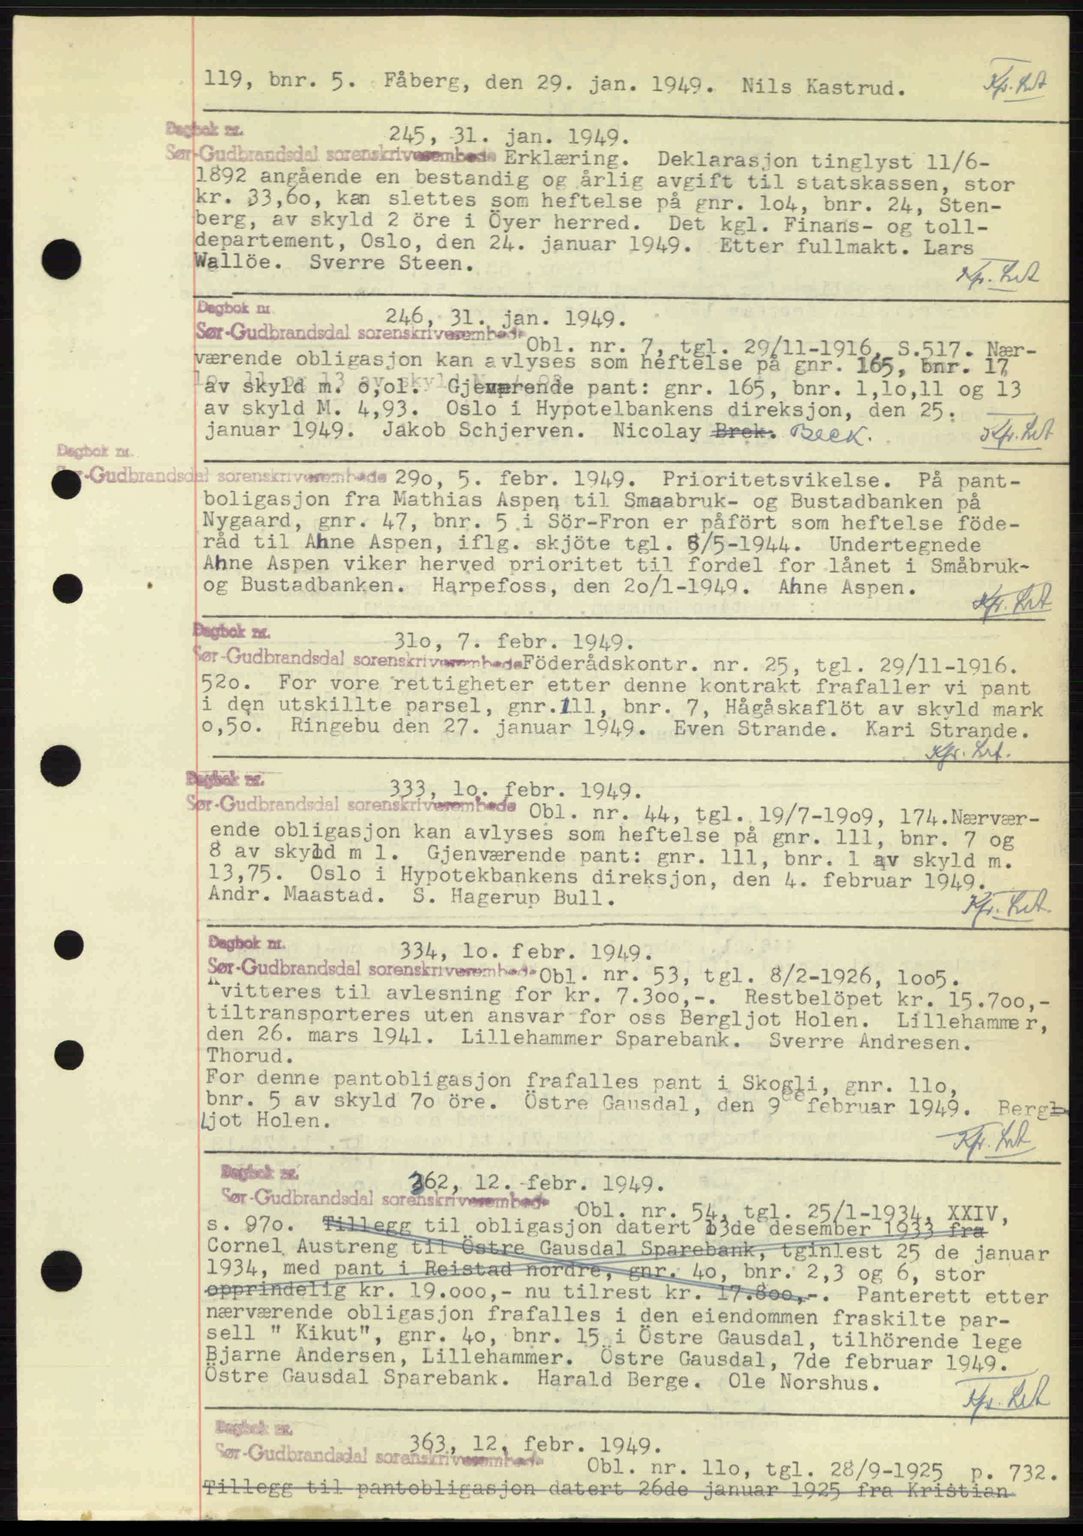 119, bnr. 5. Fåberg, den 29. jan. 1949. Nils Kastrud.
Dagbok nr. 245, 31. jan. 1949.
Sør-Gudbrandsdal sorenskriverembede Erklæring. Deklarasjon tinglyst 11/6-
1892 angående en bestandig og årlig avgift til statskassen, stor
kr. 33,6o, kan slettes som heftelse på gnr. 1o4, bnr. 24, Sten-
berg, av skyld 2 öre i Öyer herred. Det kgl. Finans- og toll-
departement, Oslo, den 24. januar 1949. Etter fullmakt. Lars
Wallöe. Sverre Steen.
Dagbok nr 246, 31. jan. 1949.
Sør-Gudbrandsdal sorenskriverembede Obl. nr. 7, tgl. 29/11-1916, S.517. Nær-
værende obligasjon kan avlyses som heftelse på gnr. 165, bnr. 17
av skyld m. o,o1. Gjenværende pant: gnr. 165, bnr. 1,1o,11 og 13
av skyld M. 4,93. Oslo i Hypotelbankens direksjon, den 25.
januar 1949. Jakob Schjerven. Nicolay Brek. Beck.
Dagbok nr.
Sør-Gudbrandsdal sorenskriverembede 29o, 5. febr. 1949. Prioritetsvikelse. På pant-
boligasjon fra Mathias Aspen til Smaabruk- og Bustadbanken på
Nygaard, gnr. 47, bnr. 5 i Sör-Fron er påfört som heftelse föde-
råd til Anne Aspen, iflg. skjöte tgl. 8/5-1944. Undertegnede
Anne Aspen viker herved prioritet til fordel for lånet i Småbruk-
og Bustadbanken. Harpefoss, den 2o/1-1949. Anne Aspen.
Dagbok nr. 31o, 7. febr. 1949.
Sør-Gudbrandsdal sorenskriverembede Föderådskontr. nr. 25, tgl. 29/11-1916.
52o. For vore rettigheter etter denne kontrakt frafaller vi pant
i den utskillte parsel, gnr. 111, bnr. 7, Hågåskaflöt av skyld mark
o,5o. Ringebu den 27. januar 1949. Even Strande. Kari Strande.
Dagbok nr. 333, 1o. febr. 1949.
Sør-Gudbrandsdal sorenskriverembede Obl. nr. 44, tgl. 19/7-19o9, 174.Nærvær-
ende obligasjon kan avlyses som heftelse på gnr. 111, bnr. 7 og
8 av skyld m 1. Gjenværende pant: gnr. 111, bnr. 1 av skyld m.
13,75. Oslo i Hypotekbankens direksjon, den 4. februar 1949.
Andr. Maastad. S. Hagerup Bull.
Dagbok nr. 334, 1o. febr. 1949.
Sør-Gudbrandsdal sorenskriverembede Obl. nr. 53, tgl. 8/2-1926, 1oo5.
"vitteres til avlesning for kr. 7.3oo,-. Restbelöpet kr. 15.7oo,-
tiltransporteres uten ansvar for oss Bergljot Holen. Lillehammer,
den 26. mars 1941. Lillehammer Sparebank. Sverre Andresen.
Thorud.
For denne pantobligasjon frafalles pant i Skogli, gnr. 11o,
bnr. 5 av skyld 7o öre. Östre Gausdal, den 9de februar 1949. Berg
ljot Holen.
Dagbok nr. 362, 12. febr. 1949.
Sør-Gudbrandsdal sorenskriverembede Obl. nr. 54, tgl. 25/1-1934, XXIV,
s. 97o. Tillegg til obligasjon datert 13de desember 1933 fra
Cornel Austreng til Östre Gausdal Sparebank, tginlest 25 de januar
1934, med pant i Reistad nordre, gnr. 4o, bnr. 2,3 og 6, stor
opprindelig kr. 19.ooo,- nu tilrest kr. 17.8oo,-. Panterett etter
nærværende obligasjon frafalles i den eiendommen fraskilte par-
sell " Kikut", gnr. 4o, bnr. 15 i Östre Gausdal, tilhörende lege
Bjarne Andersen, Lillehammer. Östre Gausdal, 7de februar 1949.
Östre Gausdal Sparebank. Harald Berge. Ole Norshus.
Dagbok nr. 363, 12. febr. 1949.
Sør-Gudbrandsdal sorenskriverembede Obl. nr. 11o, tgl. 28/9-1925 p. 732.
Tillegg til pantobligasjon datert 26de januar 1925 fra Kristian